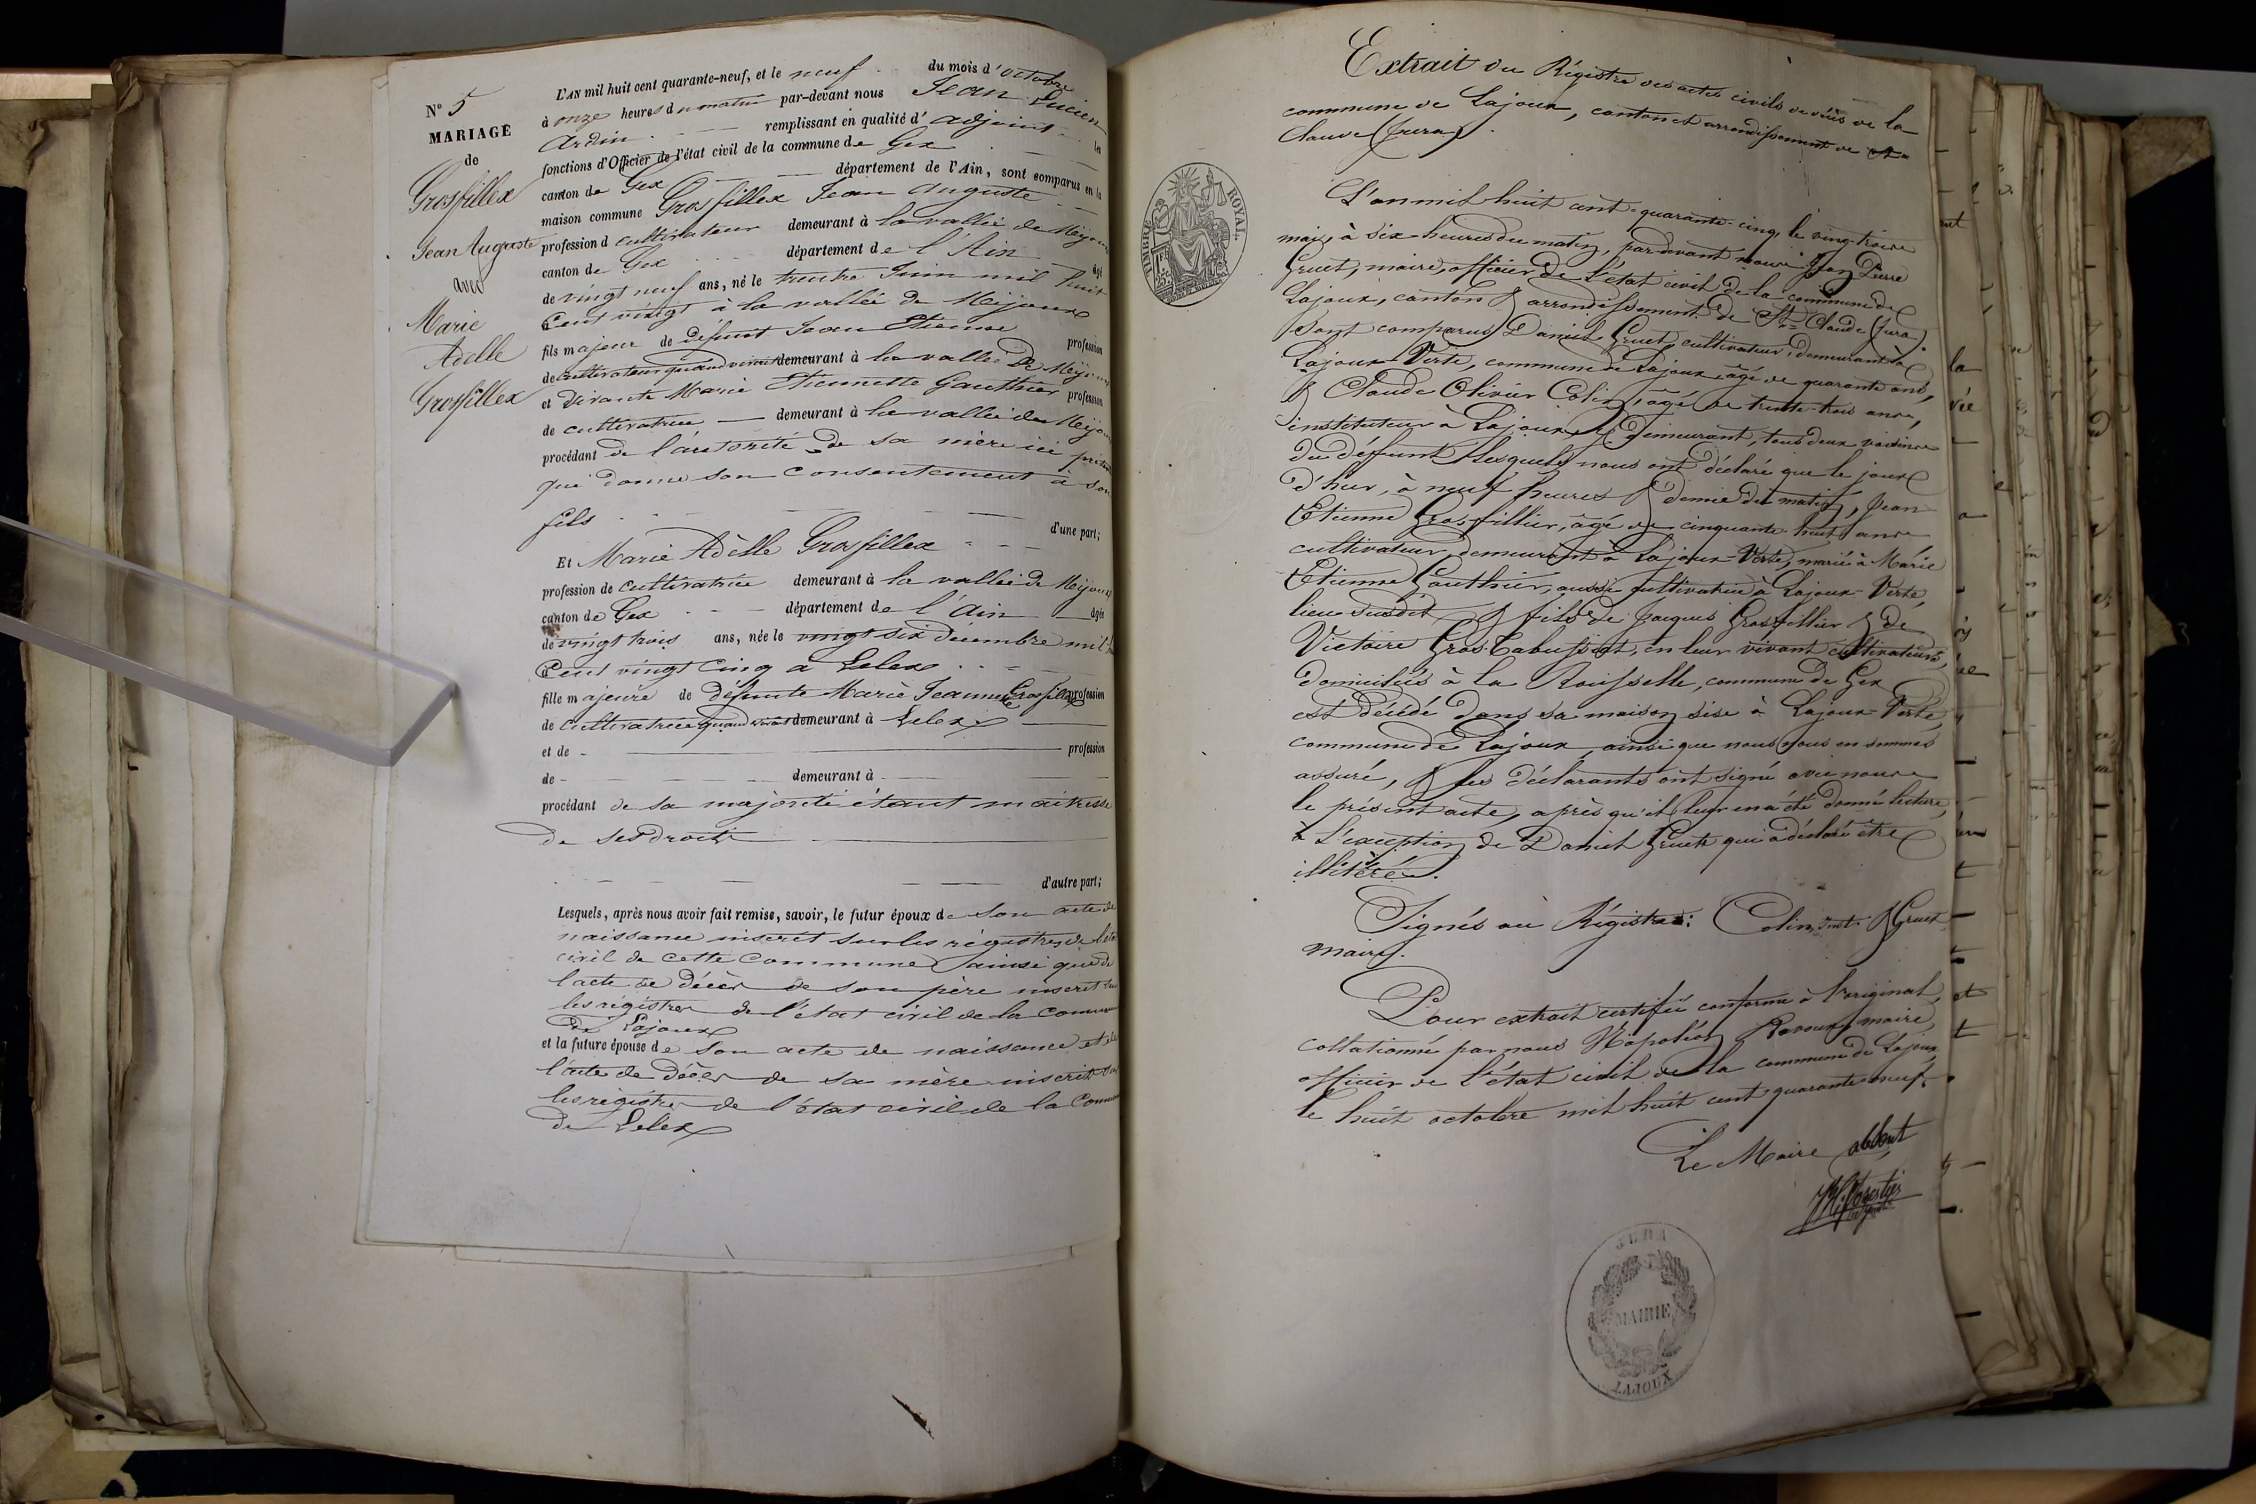 N° 5
MARIAGE
de
Grosfillex
Jean Auguste
avec
Marie
Adelle
Grosfillex
L'AN mil huit cent quarante-neuf, et le neuf du mois d'octobre
à onze heures du matin par-devant nous Jean Lucien
Ardin remplissant en qualité d'adjoint les
fonctions d'Officier de l'état civil de la commune de Gex
canton de Gex département de l'Ain, sont comparus en la
maison commune Grosfillex Jean Auguste
profession d cultivateur demeurant à la vallée de Mijoux
canton de Gex département de l'Ain âgé
de vingt neuf ans, né le trente Juin mil huit
Cent vingt à la vallée de Mijoux
fils majeur de défunt Jean Etienne profession
de cultivateur quand vivait demeurant à la vallée De Mijoux
et vivante Marie Etiennette Gauthier profession
de cultivatrice demeurant à la vallée de Mijoux
procédant de l'autorité de sa mère ici présente
qui donne son consentement à son
fils d'une part;
Et Marie Adèlle Grosfillex
profession de cultivatrice demeurant à la vallée de Mijoux
canton de Gex département de l'Ain âgée
de vingt trois ans, née le vingt six décembre mil
Cent vingt Cinq a Lelex
fille majeure de défunte Marie Jeanne Grosfillex profession
de cultivatrice quand vivait demeurant à Lelex
et de profession
de demeurant à
procédant de sa majorité étant maitresse
de ses droits
d'autre part;
Lesquels, après nous avoir fait remise, savoir, le futur époux de son acte de
naissance inscrit sur les régistres de l'état
civil de cette Commune ainsi que de
l'acte de décès de son père inscrit sur
les régistres de l'état civil de la Commune
de Lajoux
et la future épouse de son acte de naissance et de
l'acte de décès de sa mère inscrits sur
les régistres de l'état civil de la Commune
de Lelex
Extrait du Régistre des actes civils de décès de la
commune de Lajoux, canton et arrondissement de St
Claude (Jura).
TIMBRE ROYAL
1F
25c
L'an mil huit cent quarante-cinq, le vingt-trois
mai, à six heures du matin, par devant nous Jean Pierre
Gruet, maire, officier de l'état civil de la commune de
Lajoux, canton & arrondissement de St Claude (Jura).
Sont comparus Daniel Gruet, cultivateur, demeurant à
Lajoux-Verte, commune de Lajoux, âgé de quarante ans,
& Claude Olivier Colin, âgé de trente-trois ans,
instituteur à Lajoux y demeurant, tous deux voisins
du deffunt, lesquels nous ont déclaré que le jour
d'hier, à neuf heures & demie du matin, Jean
Etienne Grosfillier, âgé de cinquante-huit ans
cultivateur, demeurant à Lajoux-Verte, marié à Marie
Etienne Gauthier, aussi cultivatrice à Lajoux-Verte,
lieu susdit, & fils de Jacques Grosfillier & de
Victoire Gros-Cabussiat, en leur vivant cultivateurs,
domiciliés à la Roisselle, commune de Gex
est décédé dans sa maison sise à Lajoux-Verte,
commune de Lajoux, ainsi que nous nous en sommes
assuré, & les déclarants ont signé avec nous
le présent acte, après qu'il leur en a été donné lecture,
à l'exception de Daniel Gruet qui a déclaré être
illitéré.
Signés au Régistre: Colin, Inst. & Gruet
maire.
Pour extrait certifié conforme à l'original,
collationné par nous Napoléon Ravoux, maire,
officier de l'état civil de la commune de Lajoux
le huit octobre mil huit cent quarante neuf.
Le Maire absent
JURA
MAIRIE
LAJOUX